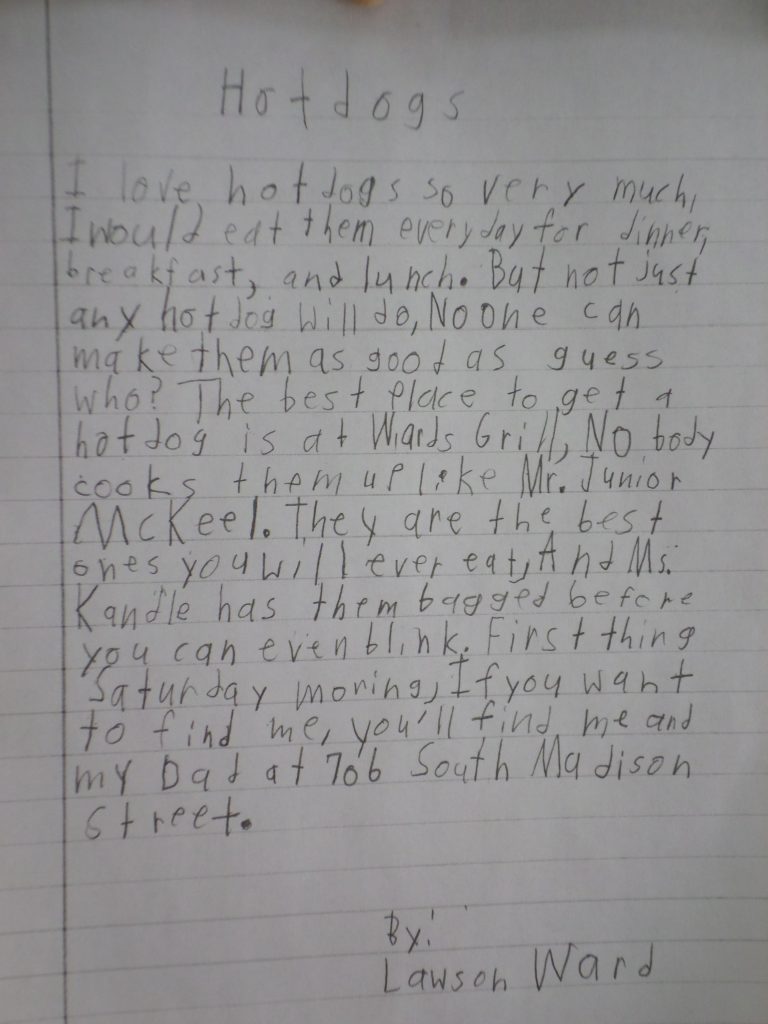 Hotdogs
I love hotdogs so very much,
I would eat them everyday for dinner,
breakfast, and lunch. But not just
any hotdog will do, No one can
make them as good as guess
who? The best place to get a
hotdog is at Wards Grill, No body
cooks them up like Mr. Junior
McKeel. They are the best
ones you will ever eat, And Ms.
Kandle has them bagged before
you can even blink. First thing
Saturday moring, If you want
to find me, you'll find me and
my Dad at 706 South Madison
Street.
By:
Lawson Ward